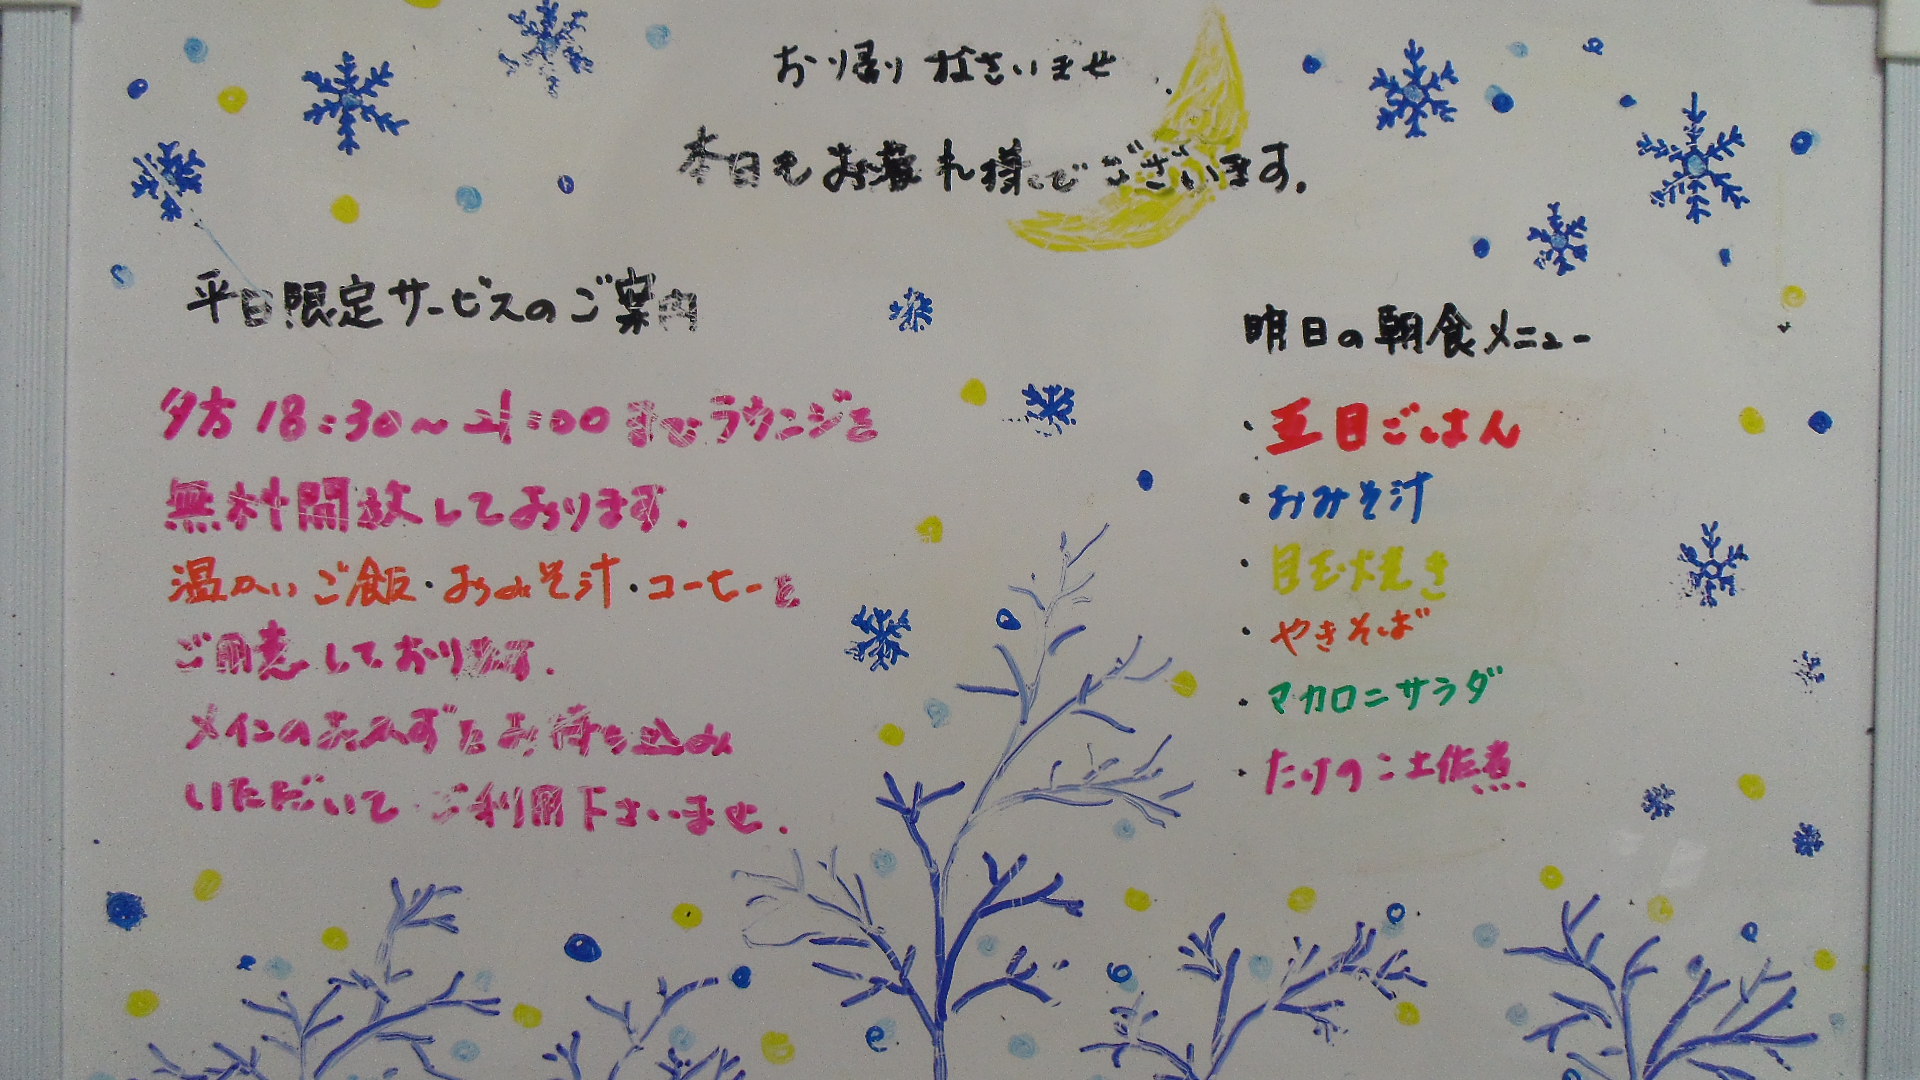 お帰りなさいませ
本日もお疲れ様でございます。
平日限定サービスのご案内
夕方18:30～21:00までラウンジを
無料開放しております。
温かいご飯・おみそ汁・コーヒーを
ご用意しております。
メインのおかずをお持ち込み
いただいてご利用下さいませ。
明日の朝食メニュー
・五目ごはん
・おみそ汁
・目玉焼き
・やきそば
・マカロニサラダ
・たけのこ土佐煮